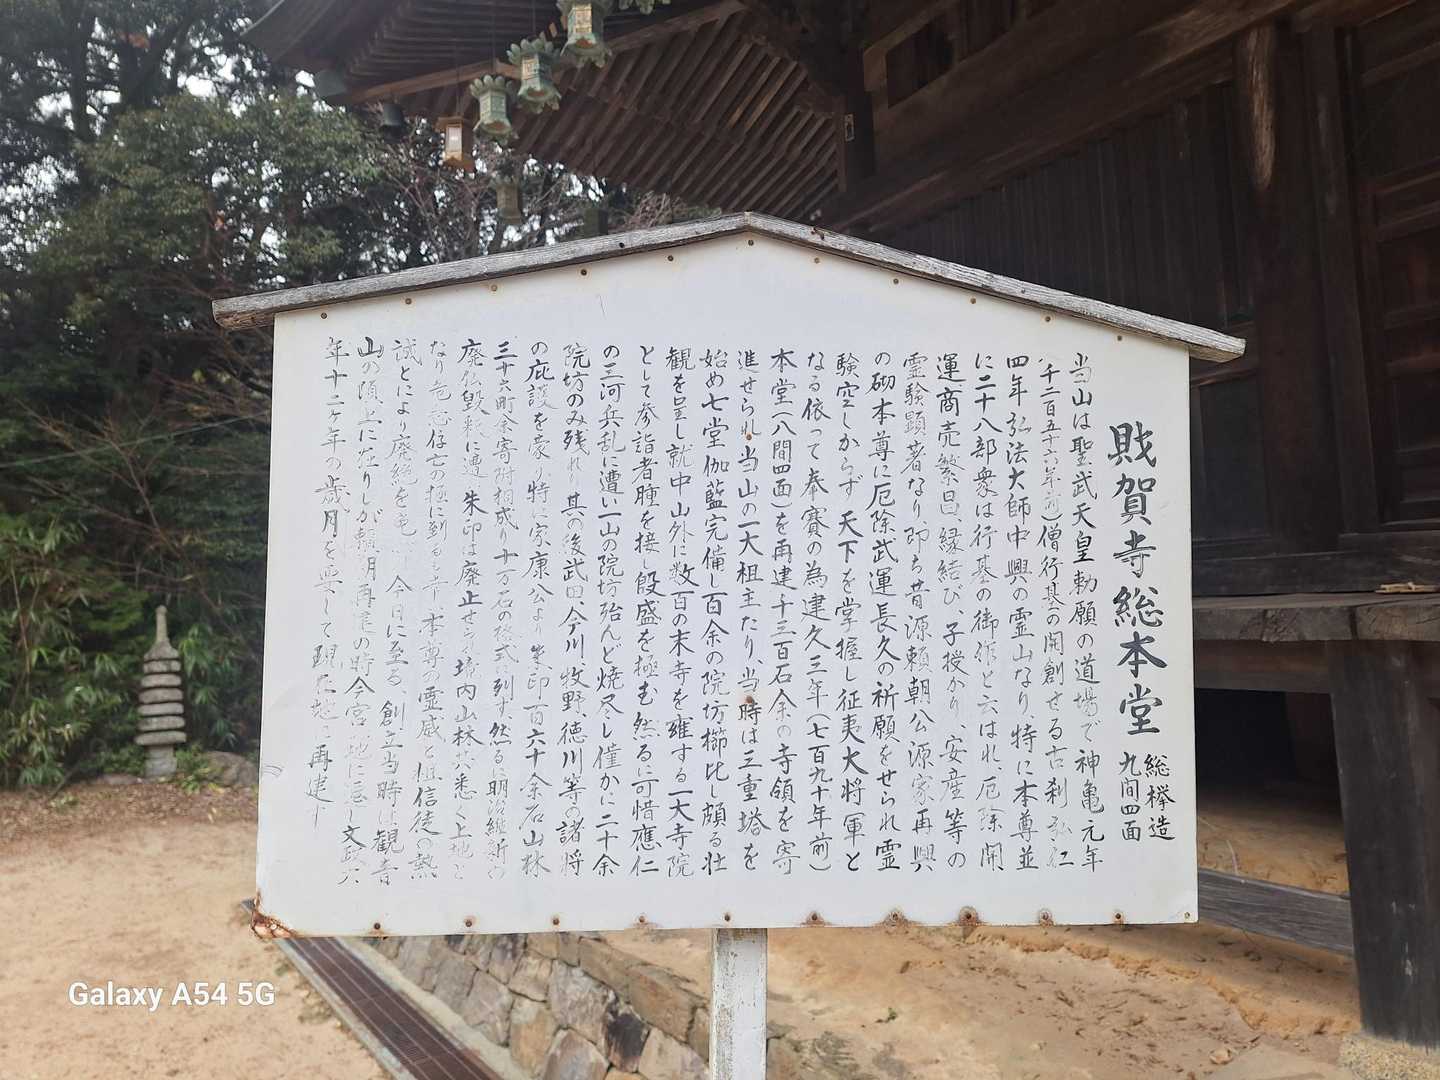 財賀寺総本堂 総欅造 九間四面
当山は聖武天皇勅願の道場で神亀元年
(千二百五十六年前)僧行基の開創せる古刹弘仁
四年弘法大師中興の霊山なり特に本尊並
に二十八部衆は行基の御作と云はれ、厄除開
運商売繁昌、縁結び、子授かり、安産等の
霊験顕著なり即ち昔源頼朝公源家再興
の砌本尊に厄除武運長久の祈願をせられ霊
験空しからず天下を掌握し征夷大将軍と
なる依って奉賽の為建久三年(七百九十年前)
本堂(八間四面)を再建千三百石余の寺領を寄
進せられ当山の一大祖主たり、当時は三重塔を
始め七堂伽藍完備し百余の院坊櫛比し頗る壮
観を呈し就中山外に数百の末寺を擁する一大寺院
として参詣者踵を接し殷盛を極む然るに可惜應仁
の三河兵乱に遭い一山の院坊殆んど焼尽し僅かに二十余
院坊のみ残れり其の後武田、今川牧野、徳川等の諸将
の庇護を蒙り特に家康公より朱印百六十余石山林
三十六町余寄附相成り十万石の格式に列す然るに明治維新の
廃仏毀釈に遭 朱印は廃止せられ境内山林は悉く上地と
なり危急存亡の極に到る 本尊の霊感と信徒の熱
誠とにより廃絶を免 今日に至る、創立当時は観音
山の頂上に在りしが頼朝再建の時今宮 地に遷し文政六
年十二ヶ年の歳月を要して現在地に再建す